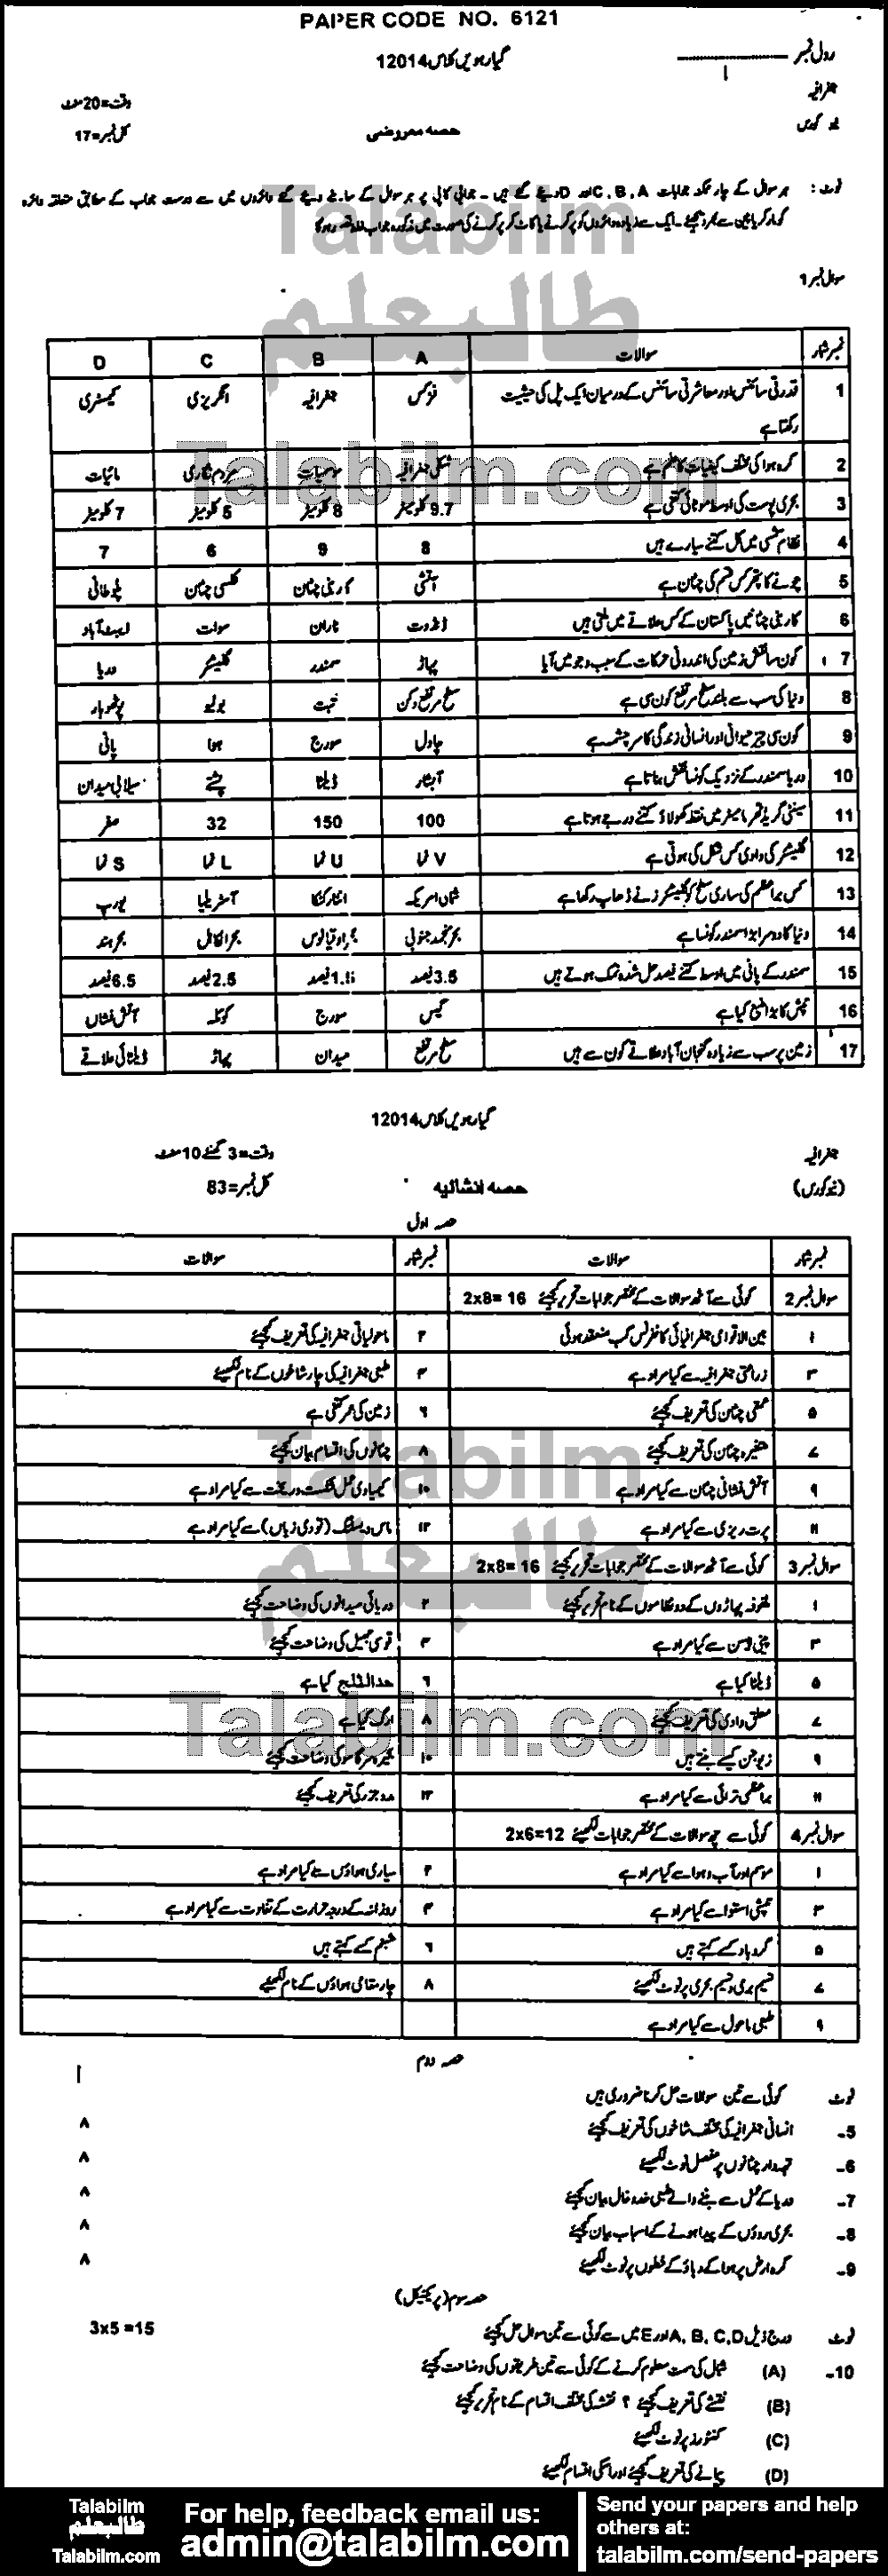 PAPER CODE NO. 6121
گیارہویں کلاس 12014
رول نمبر
جغرافیہ
وقت=20 منٹ
نیو کورس
حصہ معروضی
کل نمبر=17
نوٹ: ہر سوال کے چار ممکنہ جوابات C, B, A اور D دیئے گئے ہیں - جوابی کاپی پر ہر سوال کے سامنے دیئے گئے دائروں میں سے درست جواب کے مطابق متعلقہ دائرہ
کو مارکر یا پین سے بھر دیجئے - ایک سے زیادہ دائروں کو پُر کرنے یا کاٹ کر پُر کرنے کی صورت میں مذکورہ جواب غلط تصور ہوگا
سوال نمبر 1
نمبر شمار سوالات A B C D
1 قدرتی سائنس اور معاشرتی سائنس کے درمیان ایک پل کی حیثیت رکھتا ہے فزکس جغرافیہ انگریزی کیمسٹری
2 کرہ ہوا کی مختلف کیفیات کا علم ہے شکلی جغرافیہ موسمیات مردم شماری مائیات
3 بحری پوست کی اوسط موٹائی کتنی ہے 9.7 کلومیٹر 8 کلومیٹر 5 کلومیٹر 7 کلومیٹر
4 نظام شمسی میں کل کتنے سیارے ہیں 8 9 6 7
5 چونے کا پتھر کس قسم کی چٹان ہے آتشی کاربنی چٹان کلسی چٹان پلوطانی
6 کاربنی چٹانیں پاکستان کے کس علاقے میں ملتی ہیں ڈنڈوت ناران سوات ایبٹ آباد
7 کون سا نقش زمین کی اندرونی حرکات کے سبب وجود میں آیا پہاڑ سمندر گلیشئر دریا
8 دنیا کی سب سے بلند سطح مرتفع کون سی ہے سطح مرتفع دکن تبت بولیویا پوٹھوہار
9 کون سی چیز حیوانی اور انسانی زندگی کا سرچشمہ ہے چاول سورج ہوا پانی
10 دریا سمندر کے نزدیک کونسا نقش بناتا ہے آبشار ڈیلٹا چشمے سیلابی میدان
11 سینٹی گریڈ تھرمامیٹر میں نقطہ کھولاؤ کتنے درجے ہوتا ہے 100 150 32 صفر
12 گلیشئر کی وادی کس شکل کی ہوتی ہے V نما U نما L نما S نما
13 کس براعظم کی ساری سطح کو گلیشئرز نے ڈھانپ رکھا ہے شمالی امریکہ انٹارکٹکا آسٹریلیا یورپ
14 دنیا کا دوسرا بڑا سمندر کونسا ہے بحر منجمد جنوبی بحر اوقیانوس بحر الکاہل بحر ہند
15 سمندر کے پانی میں اوسط کتنے فیصد حل شدہ نمک ہوتے ہیں 3.5 فیصد 1.5 فیصد 2.5 فیصد 6.5 فیصد
16 تپش کا بڑا منبع کیا ہے گیس سورج کوئلہ آتش فشاں
17 زمین پر سب سے زیادہ گنجان آباد علاقے کون سے ہیں سطح مرتفع میدان پہاڑ ڈیلٹائی علاقے
گیارہویں کلاس 12014
جغرافیہ
وقت=3 گھنٹے 10 منٹ
(نیو کورس)
حصہ انشائیہ
کل نمبر=83
حصہ اول
نمبر شمار سوالات نمبر شمار سوالات
سوال نمبر 2 کوئی سے آٹھ سوالات کے مختصر جوابات تحریر کیجئے 2x8= 16
۱ بین الاقوامی جغرافیائی کانفرنس کب منعقد ہوئی ۲ ماحولیاتی جغرافیہ کی تعریف کیجئے
۳ زراعتی جغرافیہ سے کیا مراد ہے ۴ طبعی جغرافیہ کی چار شاخوں کے نام لکھیئے
۵ عمقی چٹان کی تعریف کیجئے ۶ زمین کی عمر کتنی ہے
۷ متغیرہ چٹان کی تعریف کیجئے ۸ چٹانوں کی اقسام بیان کیجئے
۹ آتش فشانی چٹان سے کیا مراد ہے ۱۰ کیمیاوی عمل شکست و ریخت سے کیا مراد ہے
۱۱ پرت ریزی سے کیا مراد ہے ۱۲ ماس ویسٹنگ (تودی زیاں) سے کیا مراد ہے
سوال نمبر 3 کوئی سے آٹھ سوالات کے مختصر جوابات تحریر کیجئے 2x8= 16
۱ ملفوفہ پہاڑوں کے دو نظاموں کے نام تحریر کیجئے ۲ دریائی میدانوں کی وضاحت کیجئے
۳ پینی پلین سے کیا مراد ہے ۴ قوسی جھیل کی وضاحت کیجئے
۵ ڈیلٹا کیا ہے ۶ حدالثلج کیا ہے
۷ معلق وادی کی تعریف کیجئے ۸ ارگ کیا ہے
۹ زیوجن کیسے بنتے ہیں ۱۰ بحیرہ سرگاسو کی وضاحت کیجئے
۱۱ براعظمی ترائی سے کیا مراد ہے ۱۲ مدوجزر کی تعریف کیجئے
سوال نمبر 4 کوئی سے چھ سوالات کے مختصر جوابات لکھیئے 2x6=12
۱ موسم اور آب و ہوا سے کیا مراد ہے ۲ سیاری ہواؤں سے کیا مراد ہے
۳ تپشی استوا سے کیا مراد ہے ۴ روزانہ کے درجہ حرارت کے تفاوت سے کیا مراد ہے
۵ گردباد کسے کہتے ہیں ۶ شبنم کسے کہتے ہیں
۷ نسیم بری و نسیم بحری پر نوٹ لکھیئے ۸ چار مقامی ہواؤں کے نام لکھیئے
۹ طبعی ماحول سے کیا مراد ہے
حصہ دوم
نوٹ کوئی سے تین سوالات حل کرنا ضروری ہیں
5- انسانی جغرافیہ کی مختلف شاخوں کی تعریف کیجئے ۸
6- تہہ دار چٹانوں پر مفصل نوٹ لکھیئے ۸
7- دریا کے عمل سے بننے والے طبعی خدوخال بیان کیجئے ۸
8- بحری روؤں کے پیدا ہونے کے اسباب بیان کیجئے ۸
9- کرہ ارض پر ہوا کے دباؤ کے خطوں پر نوٹ لکھیئے ۸
حصہ سوم (پریکٹیکل)
نوٹ درج ذیل A, B, C, D اور E میں سے کوئی سے تین سوال حل کیجئے 3x5 =15
10- (A) شمال کی سمت معلوم کرنے کے کوئی سے تین طریقوں کی وضاحت کیجئے
(B) نقشے کی تعریف کیجئے ؟ نقشہ کی مختلف اقسام کے نام تحریر کیجئے
(C) کنٹورز پر نوٹ لکھیئے
(D) پیمانے کی تعریف کیجئے اور اسکی اقسام لکھیئے
Talabilm
طالبعلم
Talabilm.com
For help, feedback email us:
admin@talabilm.com
Send your papers and help
others at:
talabilm.com/send-papers